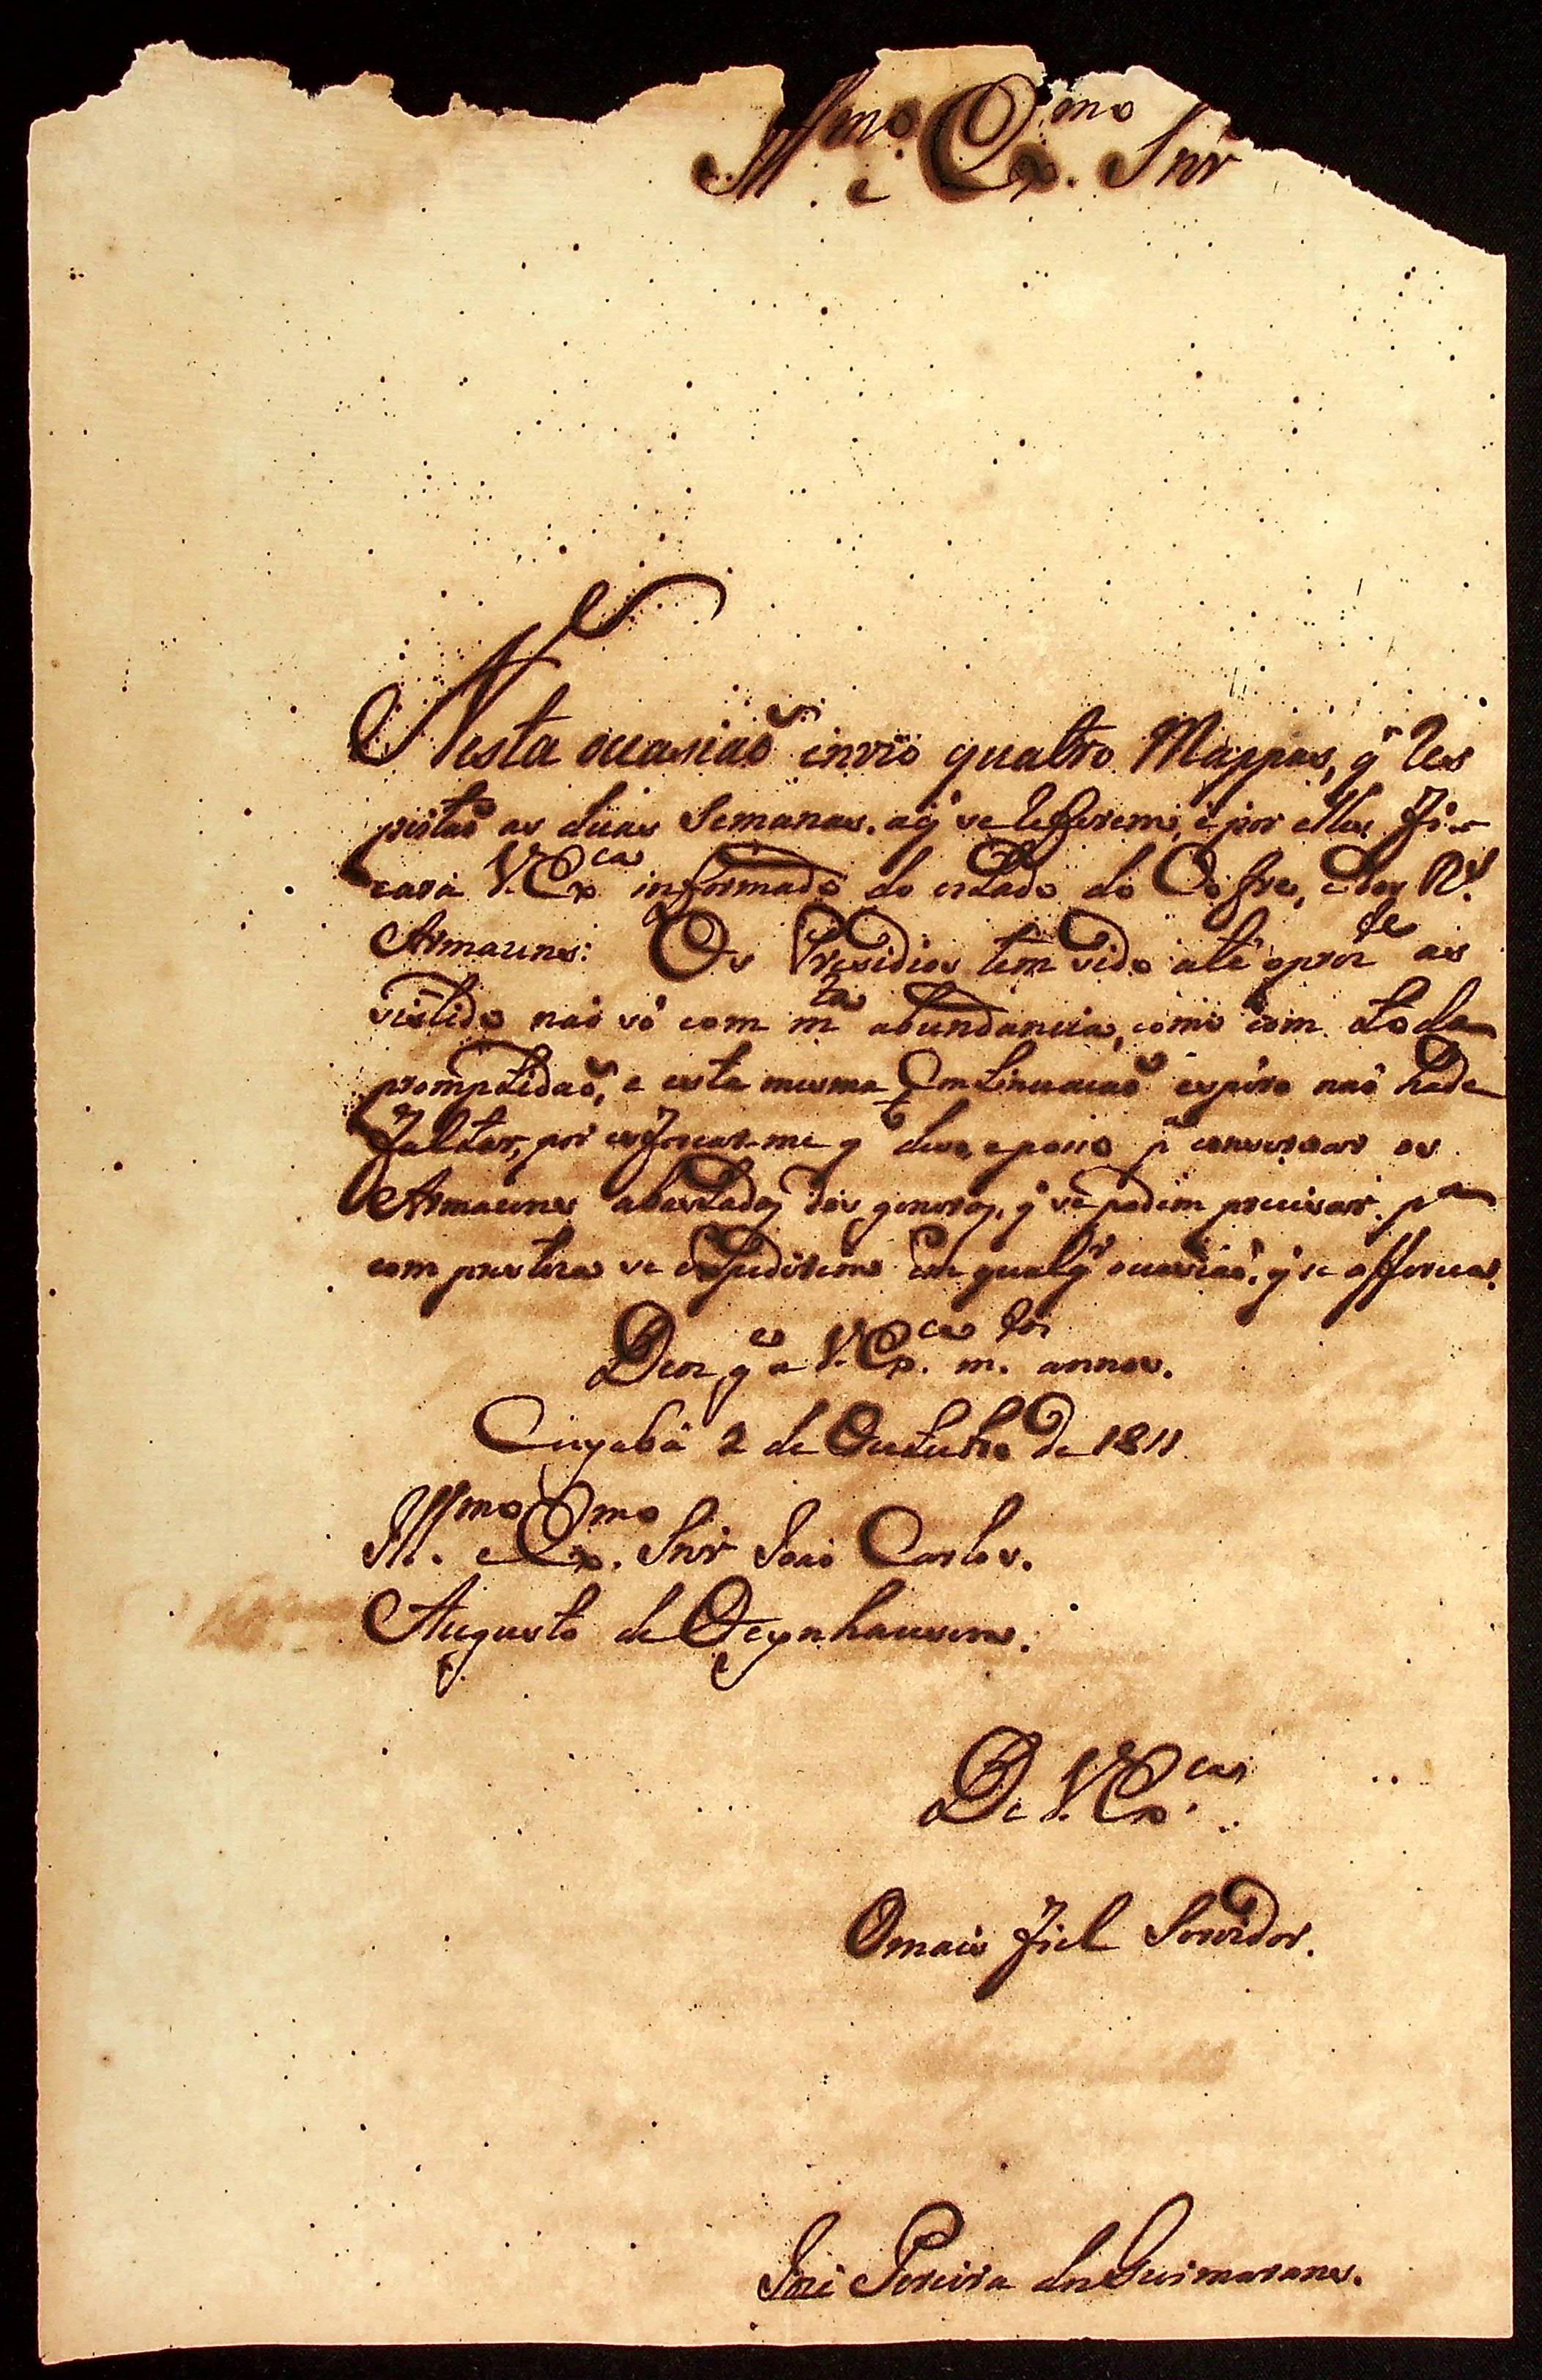 Ill.mo e Ex.mo Snr
Nesta occasiaõ invio quatro Mappas, q̃ res
peitaõ as duas Semanas, aq̃ se referem, e por elles fi-
cará V. Ex.ca informado do estado do Cofre, e dos R.s
Armazens: Os Presidios tem sido até oprez.te as
sistido naõ só com m.ta abundancia, como com toda
promptidaõ, e esta mesma Continuacaõ espero naõ hade
faltar, por esforcar-me q.to devo, eposso p.a conservar os
Armazens abastados dos generos, q̃ se podem precisar p.a
com presteza se expedirem em qualq.r occasiaõ, q̃ se offereca.
Deos g.e a V. Ex.ca m.tos annos.
Cuyabá 2 de Outubro de 1811
Ill.mo e Ex.mo Snr Joaõ Carlos
Augusto de Oeynhausen.
De V. Ex.ca
Omais fiel Servidor.
José Pereira dos Guimaranes.